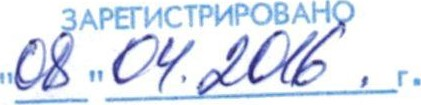 ЗАРЕГИСТРИРОВАНО
"08" 04. 2016. г.